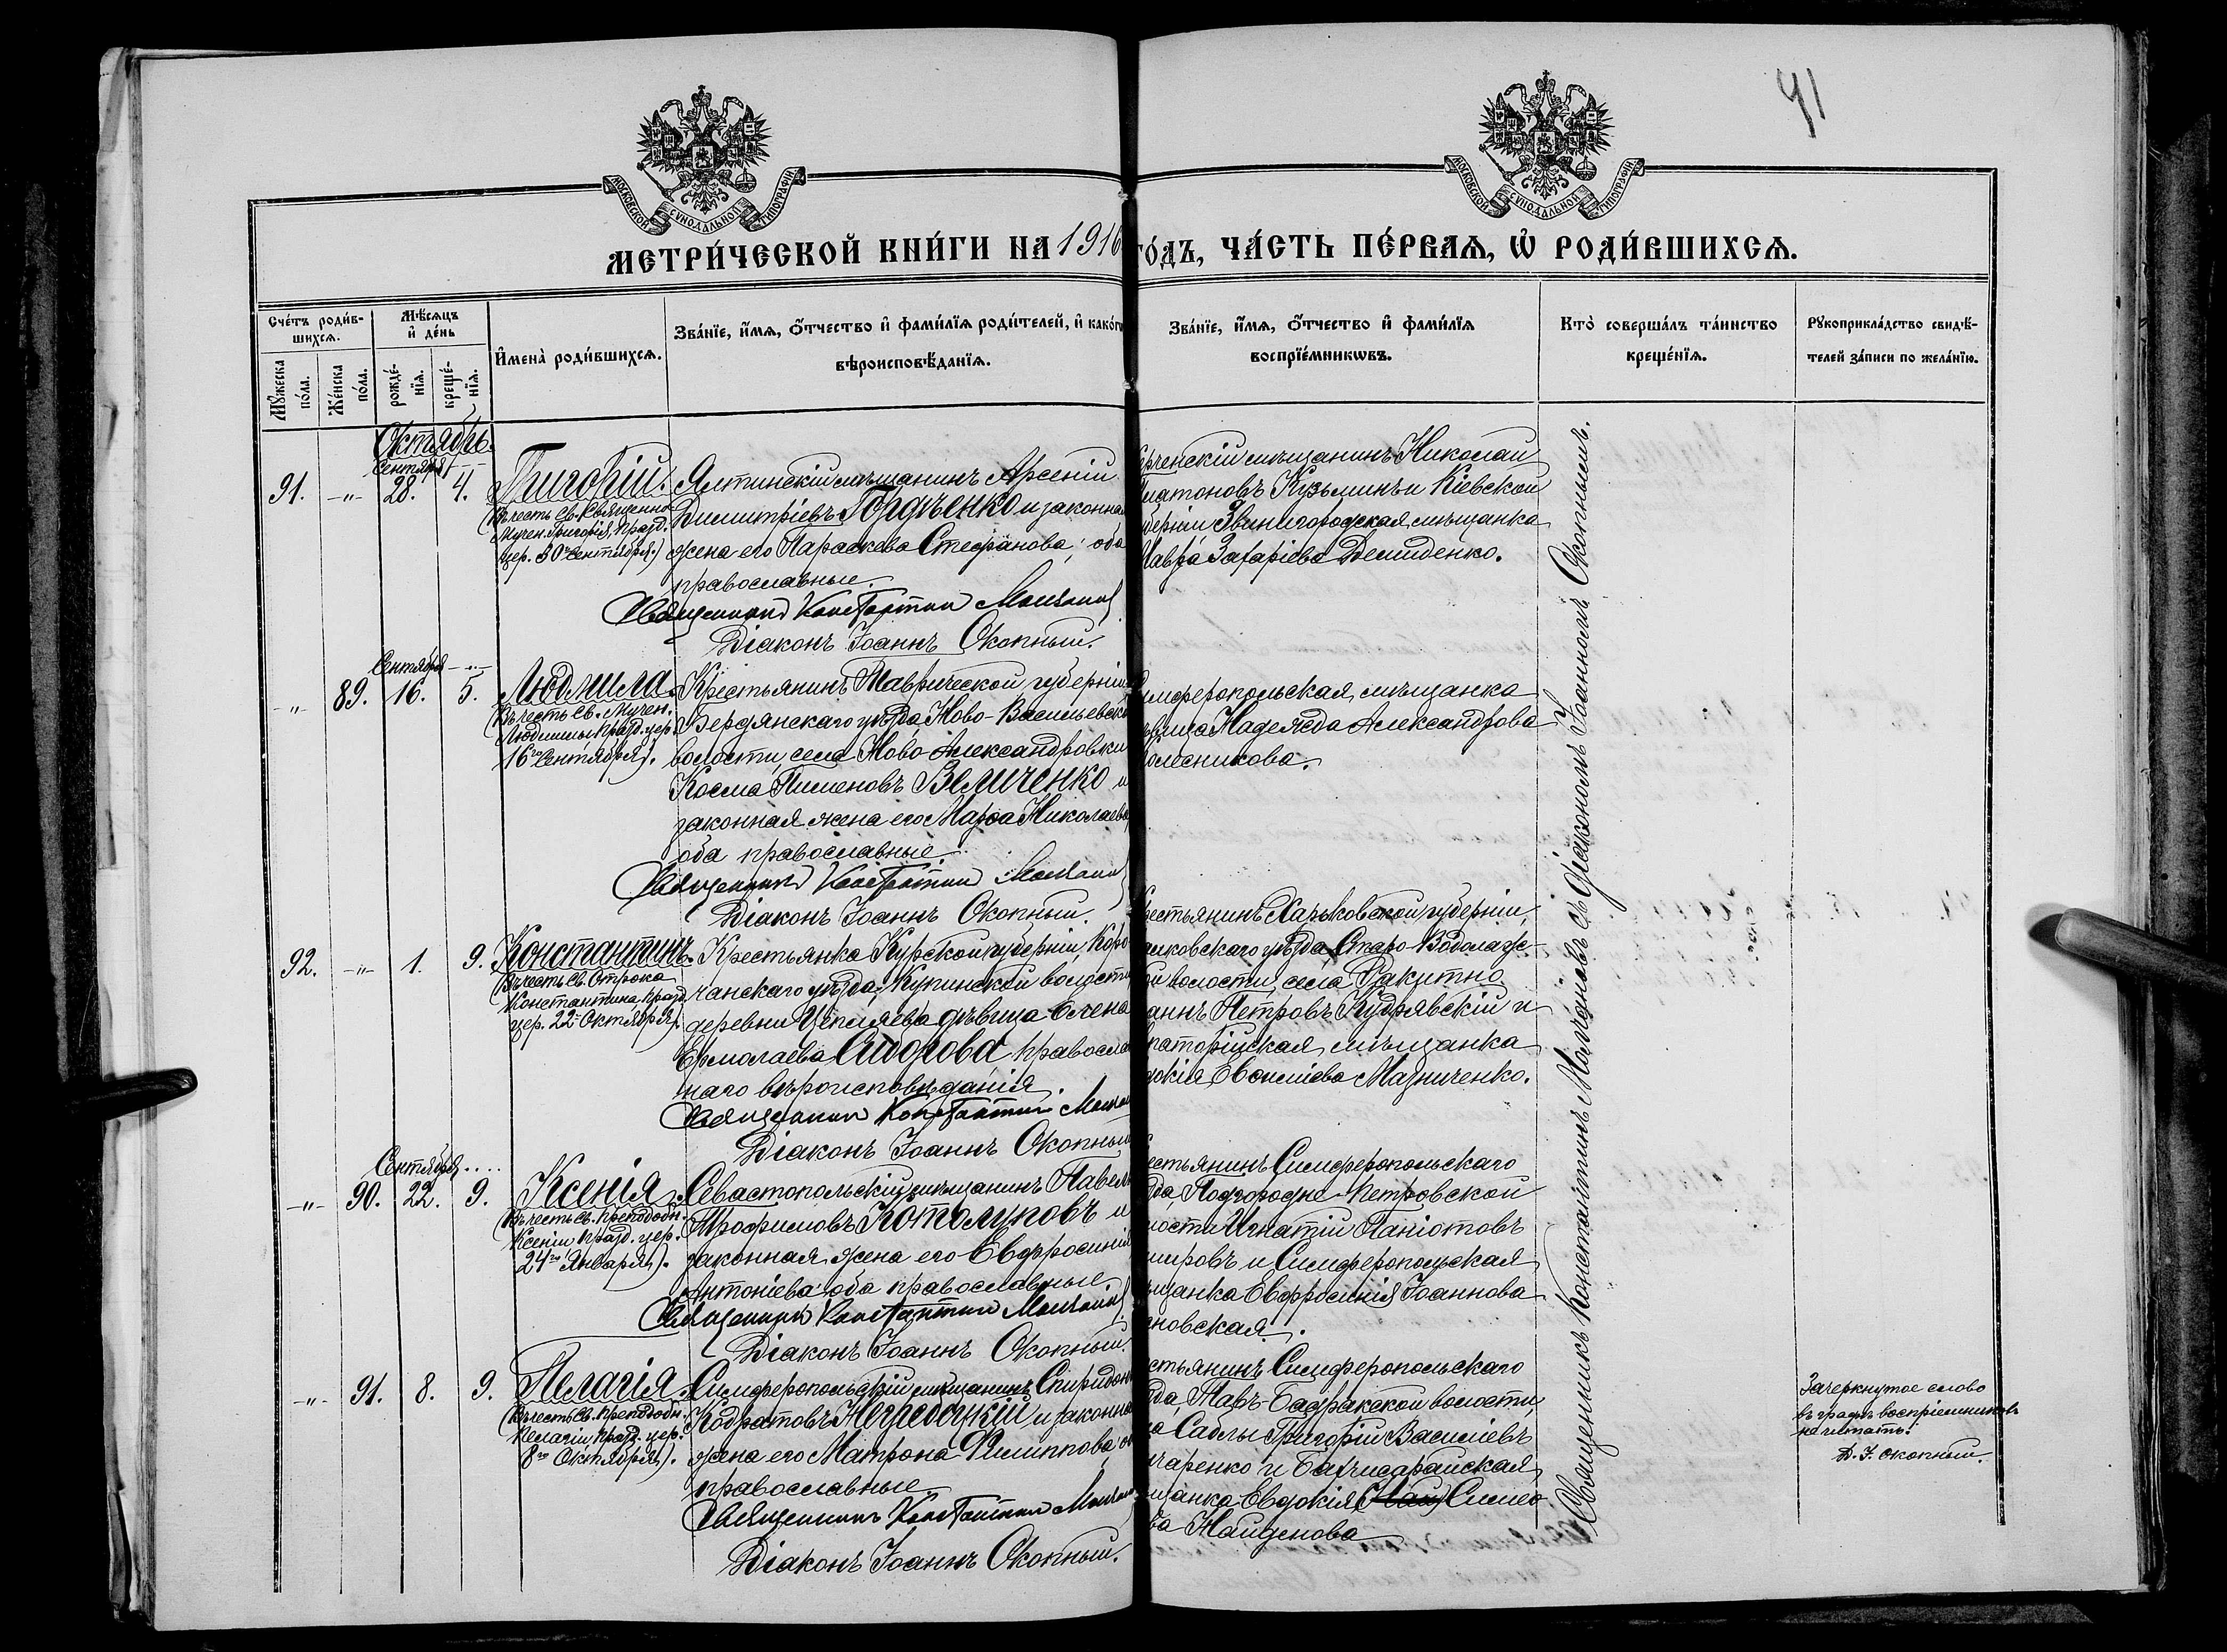 91
МОСКОВСКОЙ СѴНОДАЛЬНОЙ ТИПОГРАФІИ
МОСКОВСКОЙ СѴНОДАЛЬНОЙ ТИПОГРАФІИ
МЕТРИ́ЧЕСКОЙ КНИ́ГИ НА 1916 ГО́ДЪ, ЧА́СТЬ ПЕ́РВАѦ, Ѽ РОДИ́ВШИХСѦ.
Сче́тъ роди́вшихсѧ.
Мꙋжеска по́ла.
Же́нска по́ла.
Мѣ́сѧцъ и҆ де́нь
рожде́нїѧ.
креще́нїѧ.
И҆мена̀ роди́вшихсѧ.
Зва́нїе, и҆́мѧ, ѻ҆́тчество и҆ фами́лїѧ роди́телей, и҆ како́гѡ
вѣроисповѣ́данїѧ.
Зва́нїе, и҆́мѧ, ѻ҆́тчество и҆ фами́лїѧ
воспрїе́мникѡвъ.
Кто̀ соверша́лъ та́инство
креще́нїѧ.
Рꙋкоприкла́дство свидѣ́-
телей за́писи по жела́нїю.
Октябрь.
Сентября
91. -"- 28. 4. Григорій.
(Въ честь Св. Священно
Мучен. Григорія, празд.
цер. 30го Сентября.)
Ялтинскій мѣщанинъ Арсеній
Димитріевъ Гордченко и законна
жена его Параскева Стефанова; оба
православные.
Священникъ Константин Молчанов
Діаконъ Іоаннъ Окопный.
ерченскій мѣщанинъ Николай
латоновъ Кузьминъ и Кіевской
уберніи, Звинигородская мѣщанка
Мавра Захаріева Демиденко.
Сентября -"-
-"- 89. 16. 5. Людмила.
(Въ честь Св. Мучен.
Людмилы празд. цер.
16го Сентября).
Крестьянинъ Таврической губерніи
Бердянскаго уѣзда Ново-Васильевско
волости, села Ново Александровки
Косма Пименовъ Величенко и
законная жена его Марѳа Николаева,
оба православные.
Священникъ Константин Молчанов
Діаконъ Іоаннъ Окопный.
имферопольская мѣщанка
ѣвица Надежда Александрова
олесникова.
92. -"- 1. 9. Константинъ.
(Въ честь Св. Отрока
Константина празд.
цер. 22го Октября).
Крестьянка Курской губерніи, Коро
чанскаго уѣзда, Купинской волости
деревни Цепляева дѣвица Елена
Ермолаева Сидорова, правосла
наго вѣроисповѣданія.
Священник Константин Молчан
Діаконъ Іоаннъ Окопный
рестьянинъ Харьковской губерніи
алковскаго уѣзда, Старо-Водолаж-
ой волости, села Ракитно
аннъ Петровъ Кудрявскій и
впаторійская мѣщанка
докія Евсиліева Мазниченко.
Сентября ....
-"- 90. 22. 9. Ксенія.
(Въ честь Св. преподобн.
Ксеніи празд. цер.
24го Января).
Севастопольскій мѣщанинъ Павелъ
Трофимовъ Котолуповъ и
законная жена его Евфросинія
Антоніева, оба православные.
Священникъ Константин Молчанов
Діаконъ Іоаннъ Окопный.
естьянинъ Симферопольскаго
зда, Подгородне-Петровской
лости Игнатій Паніотовъ
мировъ и Симферопольская
ѣщанка Евфросинія Іоаннова
новская.
-"- 91. 8. 9. Пелагія.
(Въ честь Св. преподобн.
Пелагіи празд. цер.
8го Октября).
Симферопольскій мѣщанинъ Спиридон
Кодратовъ и законна
жена его Матрона Филиппова, о
православные.
Священникъ Константин Молчан
Діаконъ Іоаннъ Окопный.
естьянинъ Симферопольскаго
зда, Тавъ-Бадракской волости
ла Саблы Григорій Василіевъ
нчаренко и Бахчисарайская
ѣщанка Евдокія (Най) Симео
ва Найденова
Священникъ Константинъ Молчановъ съ діакономъ Іоанномъ Окопнымъ.
Зачеркнутое слово
въ графѣ воспріемниковъ
не читать.
Д. І. Окопный.